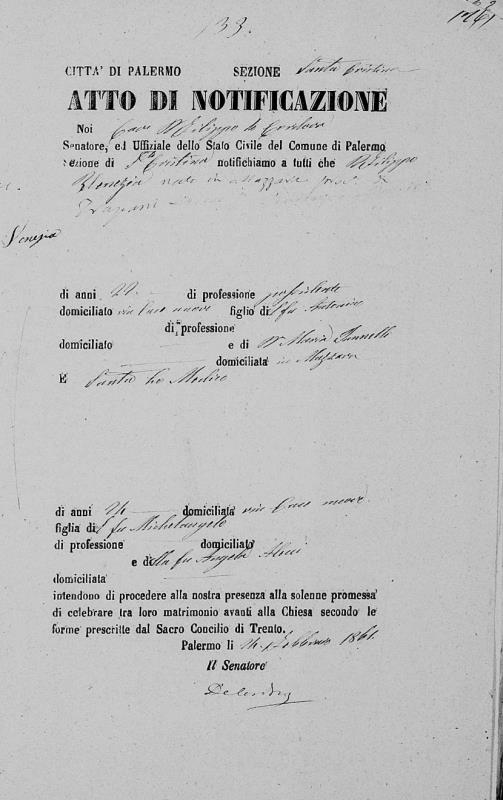 133.
CITTA' DI PALERMO SEZIONE Santa Cristina
ATTO DI NOTIFICAZIONE
Noi Cav. D. Filippo
Senatore, ed Uffiziale dello Stato Civile del Comune di Palermo
Sezione di Sta Cristina notifichiamo a tutti che D. Filippo
Venezia nato in Mazzara prov. di
Trapani
Venezia
di anni 22 di professione possidente
domiciliato via Case nuove figlio di fu Antonino
di professione
domiciliato e di Da. Maria
domiciliata in Mazzara
E Santa lo Medico
di anni 24 domiciliata via Case nuove
figlia di fu Michelangelo
di professione domiciliato
e di fu Angela
domiciliata
intendono di procedere alla nostra presenza alla solenne promessa
di celebrare tra loro matrimonio avanti alla Chiesa secondo le
forme prescritte dal Sacro Concilio di Trento.
Palermo li Febbraro 1861.
Il Senatore